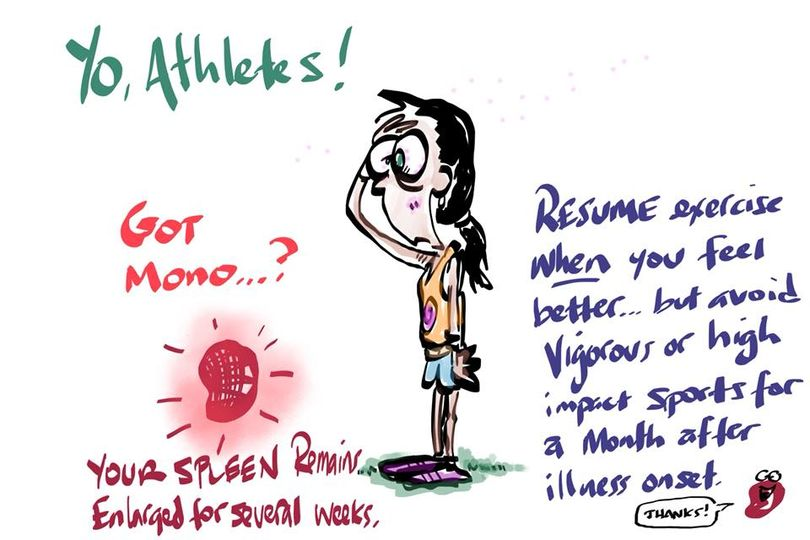 Yo, Athletes!
Got
Mono...?
YOUR SPLEEN Remains
Enlarged for several weeks.
RESUME exercise
when you feel
better... but avoid
Vigorous or high
impact sports for
a Month after
illness onset.
THANKS!